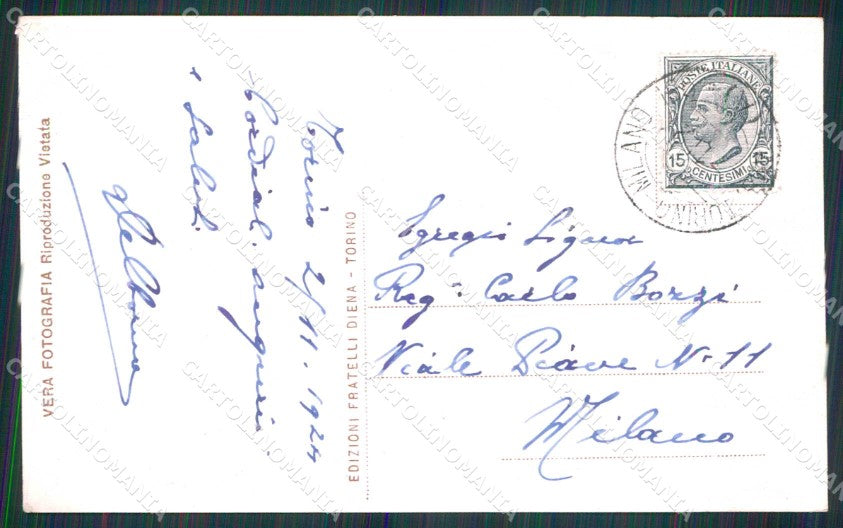 VERA FOTOGRAFIA Riproduzione Vietata
Torino 2/11.1924
Cordiali auguri
e saluti
EDIZIONI FRATELLI DIENA - TORINO
POSTE ITALIANE
15 15
CENTESIMI
MILANO TORINO
Egregio Signor
Rag. Carlo Bozzi
Viale Piave N. 11
Milano
CARTOLINOMANIA